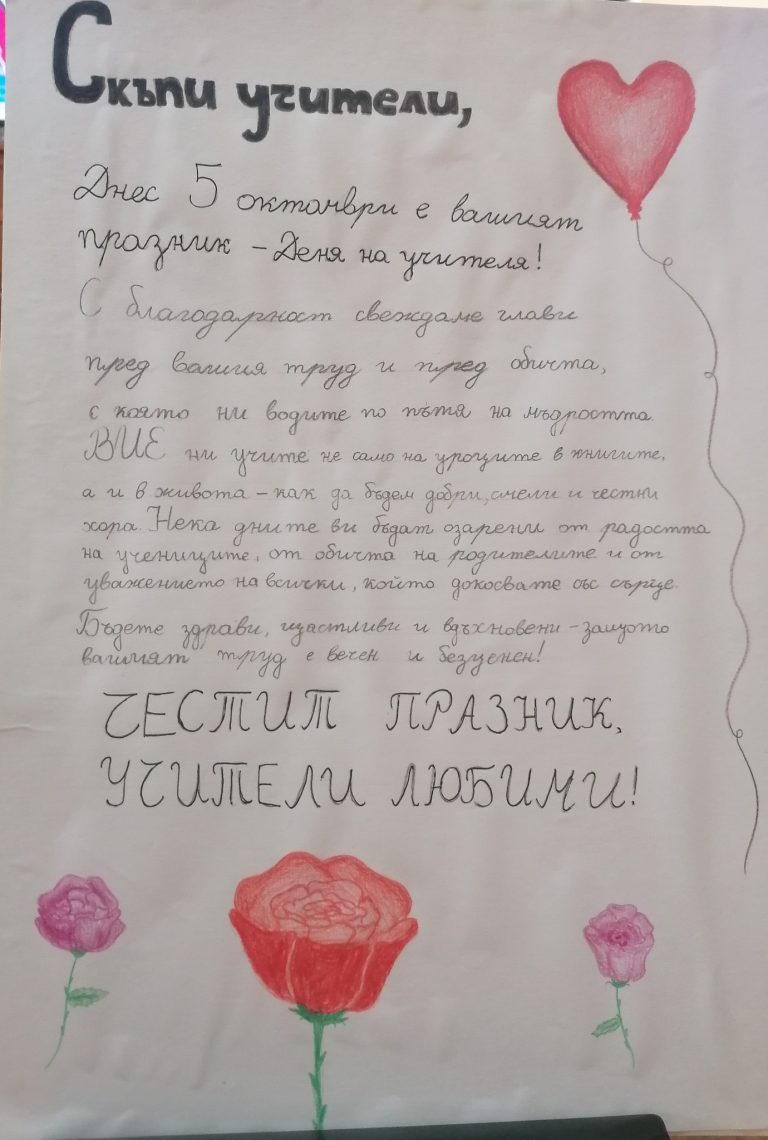 Скъпи учители,
Днес 5 октомври е вашият
празник - Деня на учителя!
С благодарност свеждаме глави
пред вашия труд и пред обичта,
с която ни водите по пътя на мъдростта.
ВИЕ ни учите не само на уроците в книгите,
а и в живота - как да бъдем добри, смели и честни
хора. Нека дните ви бъдат озарени от радостта
на учениците, от обичта на родителите и от
уважението на всички, който докосвате със сърце.
Бъдете здрави, щастливи и вдъхновени - защото
вашият труд е вечен и безценен!
ЧЕСТИТ ПРАЗНИК,
УЧИТЕЛИ ЛЮБИМИ!